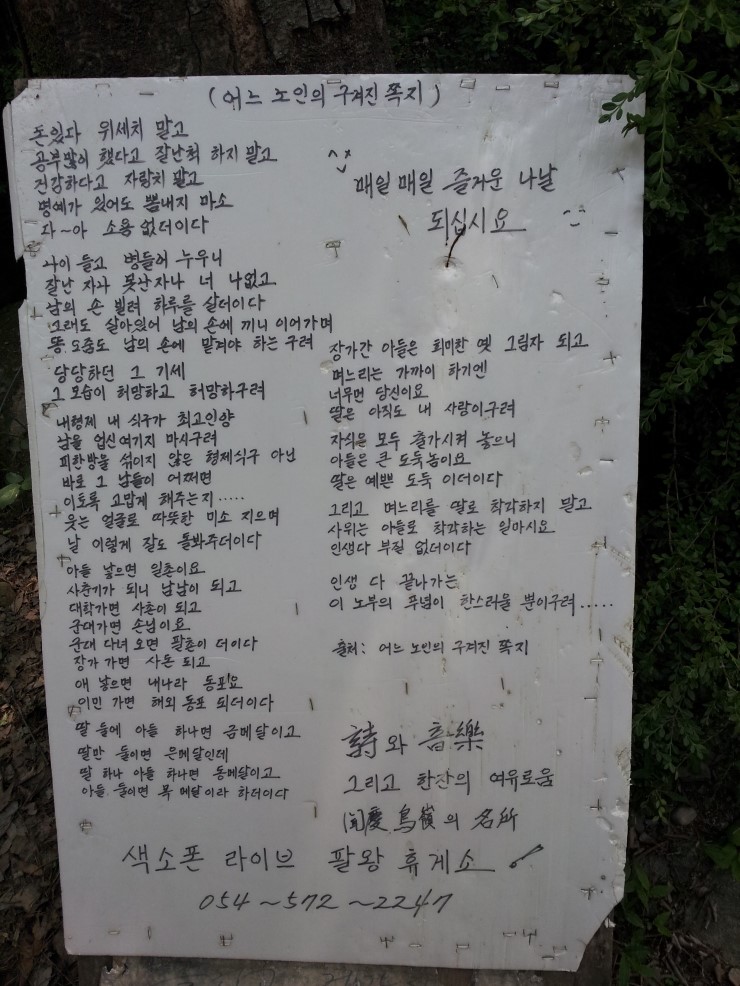 (어느 노인의 구겨진 쪽지)
돈있다 위세치 말고
공부많이 했다고 잘난척 하지 말고
건강하다고 자랑치 말고
명예가 있어도 뽐내지 마소
다~아 소용 없더이다
나이 들고 병들어 누우니
잘난 자나 못난자나 너 나없고
남의 손 빌려 하루를 살더이다
그래도 살아있어 남의 손에 끼니 이어가며
똥.오줌도 남의 손에 맡겨야 하는 구려
당당하던 그 기세
그 모습이 허망하고 허망하구려
내형제 내 식구가 최고인양
남을 업신여기지 마시구려
피한방울 섞이지 않은 형제식구 아닌
바로 그 남들이 어쩌면
이토록 고맙게 해주는지.....
웃는 얼굴로 따뜻한 미소 지으며
날 이렇게 잘도 돌봐주더이다
아들 낳으면 일촌이요
사춘기가 되니 남남이 되고
대학가면 사촌이 되고
군대가면 손님이요
군대 다녀 오면 팔촌이 더이다
장가 가면 사돈 되고
애 낳으면 내나라 동포요
이민 가면 해외 동포 되더이다
딸 둘에 아들 하나면 금메달이고
딸만 둘이면 은메달인데
딸 하나 아들 하나면 동메달이고
아들 둘이면 목 메달이라 하더이다
매일 매일 즐거운 나날
되십시요
장가간 아들은 희미한 옛 그림자 되고
며느리는 가까이 하기엔
너무먼 당신이요
딸은 아직도 내 사랑이구려
자식은 모두 출가시켜 놓으니
아들은 큰 도둑놈이요
딸은 예쁜 도둑 이더이다
그리고 며느리를 딸로 착각하지 말고
사위는 아들로 착각하는 일마시요
인생다 부질 없더이다
인생 다 끝나가는
이 노부의 푸념이 한스러울 뿐이구려.....
출처: 어느 노인의 구겨진 쪽지
詩와 音樂
그리고 한잔의 여유로움
聞慶 鳥嶺의 名所
색소폰 라이브 팔왕 휴게소
054~572~2247